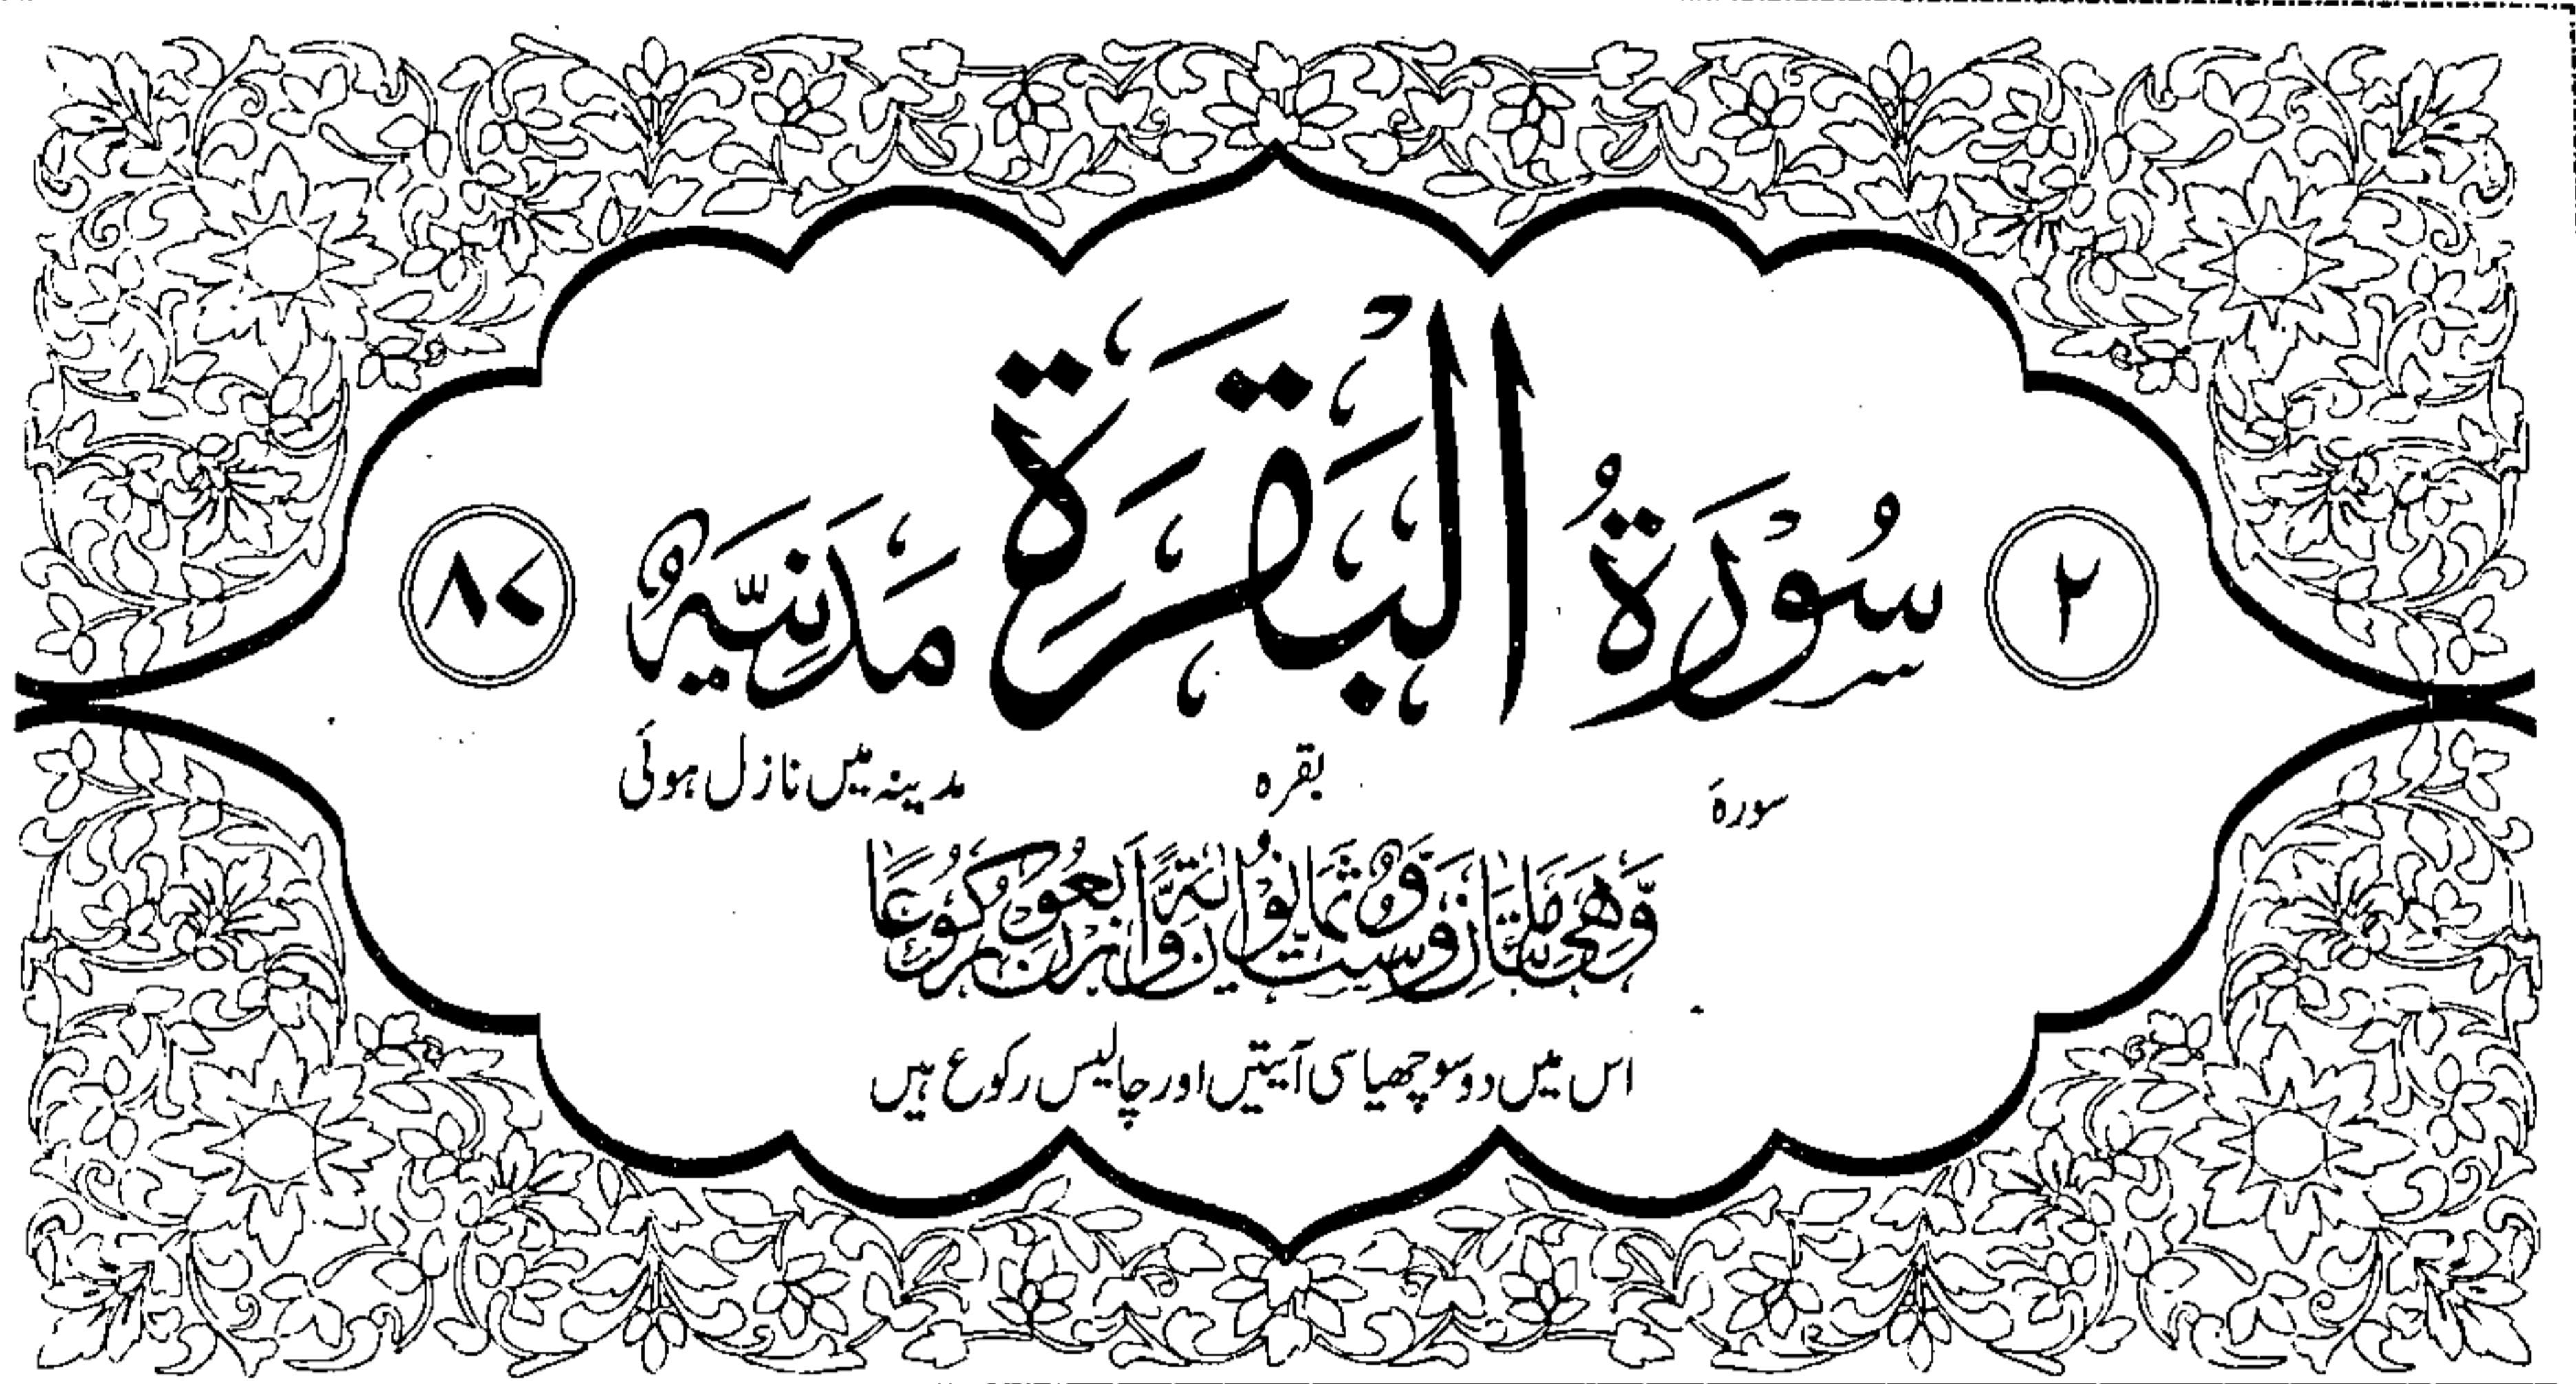 ٢ سُوْرَةُ الْبَقَرَةِ مَدَنِيَّةٌ ٨٧
سورۂ بقرہ مدینہ میں نازل ہوئی
وَّهِيَ مِائَتَانِ وَسِتٌّ وَّثَمَانُوْنَ اٰيَةً وَّاَرْبَعُوْنَ رُكُوْعًا
اس میں دو سو چھیاسی آیتیں اور چالیس رکوع ہیں